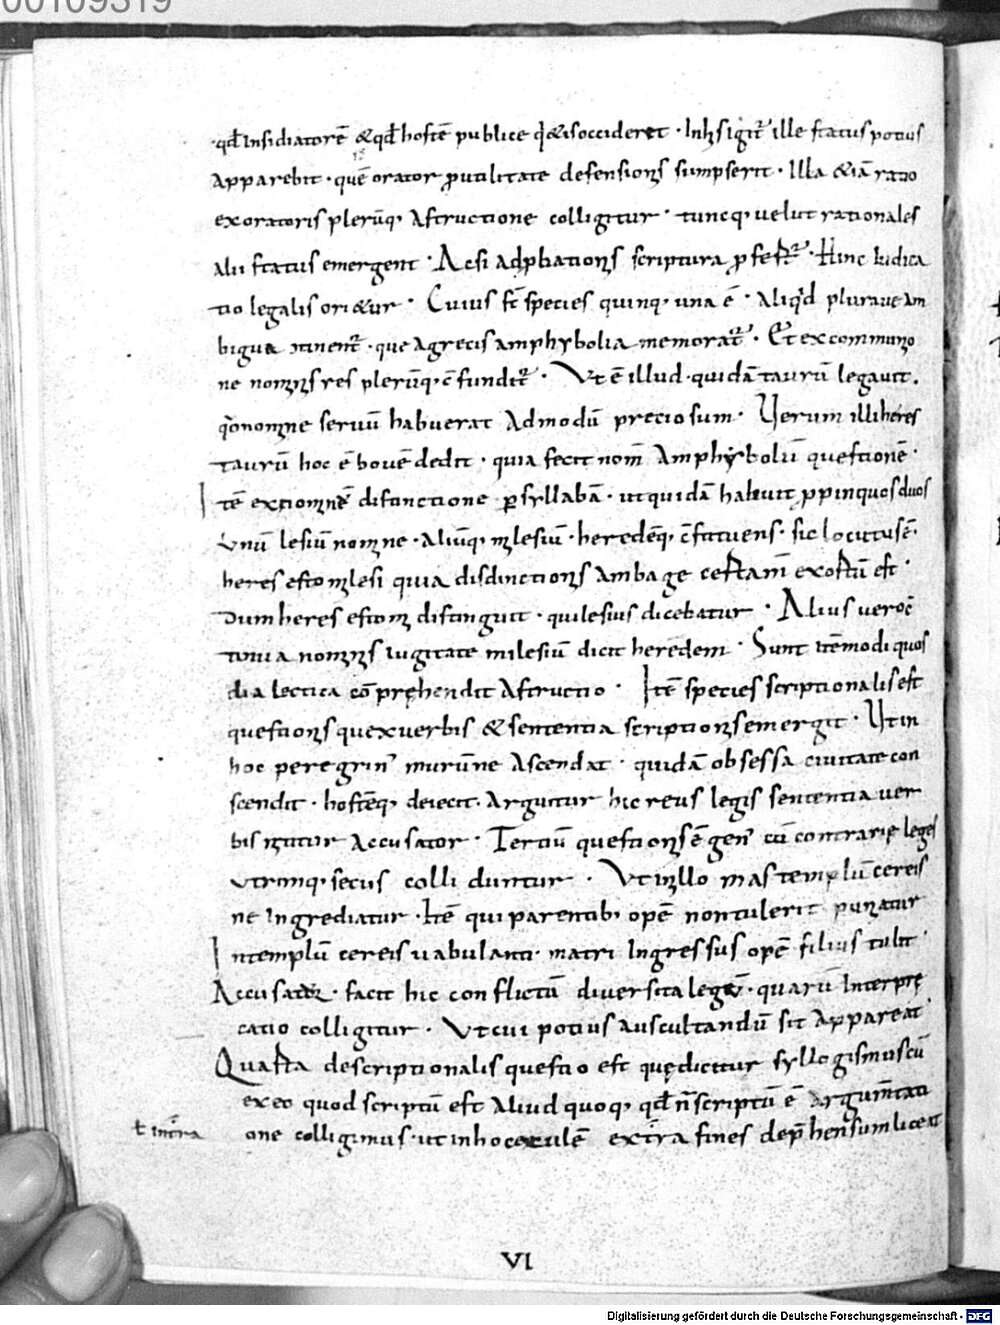 00109319
·qđ Insidiatorē &qđ hostē publice q̇ &is occideret · In his igit̄ ille status potius
Apparebit · quē orator ꝓutilitate defensionis sumpserit · Illa &iā ratio
ex oratoris plerūq; Astructione colligitur · tuncq; uelut rationales
alii status emergent · Ac si ad ꝓbationis scriptura ꝓfert̄ · Hinc iudica
tio legalis ori&ur · Cuius sc̄ species quinq; una ē · Aliq̇d plura ue Am
bigua ↄtinent̄ · que A grecis amphybolia memorat̄ · Et ex communio
ne nominis res plerūq; cfundit̄ · Vt ē illud · quidā taurū legauit .
q̊ nomine seruū habuerat Admodū preciosum · Verum illi heres
taurū hoc ē bouē dedit · quia fecit nom̄ Amphybolū questionē ·
Itē ex distinctione ꝑ syllabā · ut quidā habuit ꝓpinquos duos
Vnū lesiū nomine · Aliūq; milesiū · heredēq; cstituens · sic locutus ē ·
heres esto milesi quia disdinctionis ambage certam̄ exortū est ·
Dum heres esto mi distinguit · qui lesius dicebatur · Alius uero
nominis iugitate milesiū dicit heredem · Sunt itē modi quos
dialectica cōp̄rehendit Astructio · Itē species scriptionalis est
questionis que ex uerbis & sententia scriptionis emergit · Ut in
hoc peregrin̄ murū ne Ascendat · quidā obsessa ciuitate con
scendit · hostēq; deiecit · Arguitur hic reus legis sententia uer
bis nititur Accusator · Tertiū questionis ē gen̄ cū contrarię leges
utrinq; secus colliduntur · Vt in illo mas templū cereis
ne Ingrediatur · Itē qui parentib; opē non tulerit puniatur
In templū cereis uabulanti matri Ingressus opē filius tulit ·
Accusator̄ · facit hic conflictū diuersita legū · quarū Interprę
tatio colligitur · Vt cui potius auscultandū sit Appareat ·
Quarta de scriptionalis questio est quę dicitur syllogismus cū
ex eo quod scriptū est Aliud quoq; qđ n̄ scriptū ē Argum̄tati
ł intra one colligimus · ut in hoc exulē extra fines dep̄hensum liceat
VI
Digitalisierung gefördert durch die Deutsche Forschungsgemeinschaft - DFG